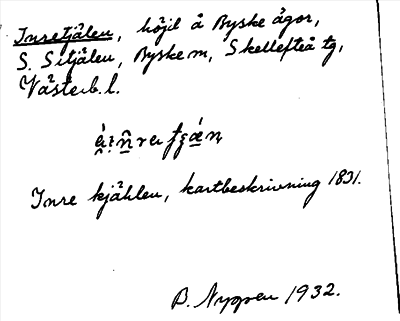 Inretjälen, höjd å Byske ägor,
S. Sitjälen, Byske m, Skellefteå tg,
Västerb. l.
Inre kjählen, kartbeskrivning 1831.
B. Nygren 1932.